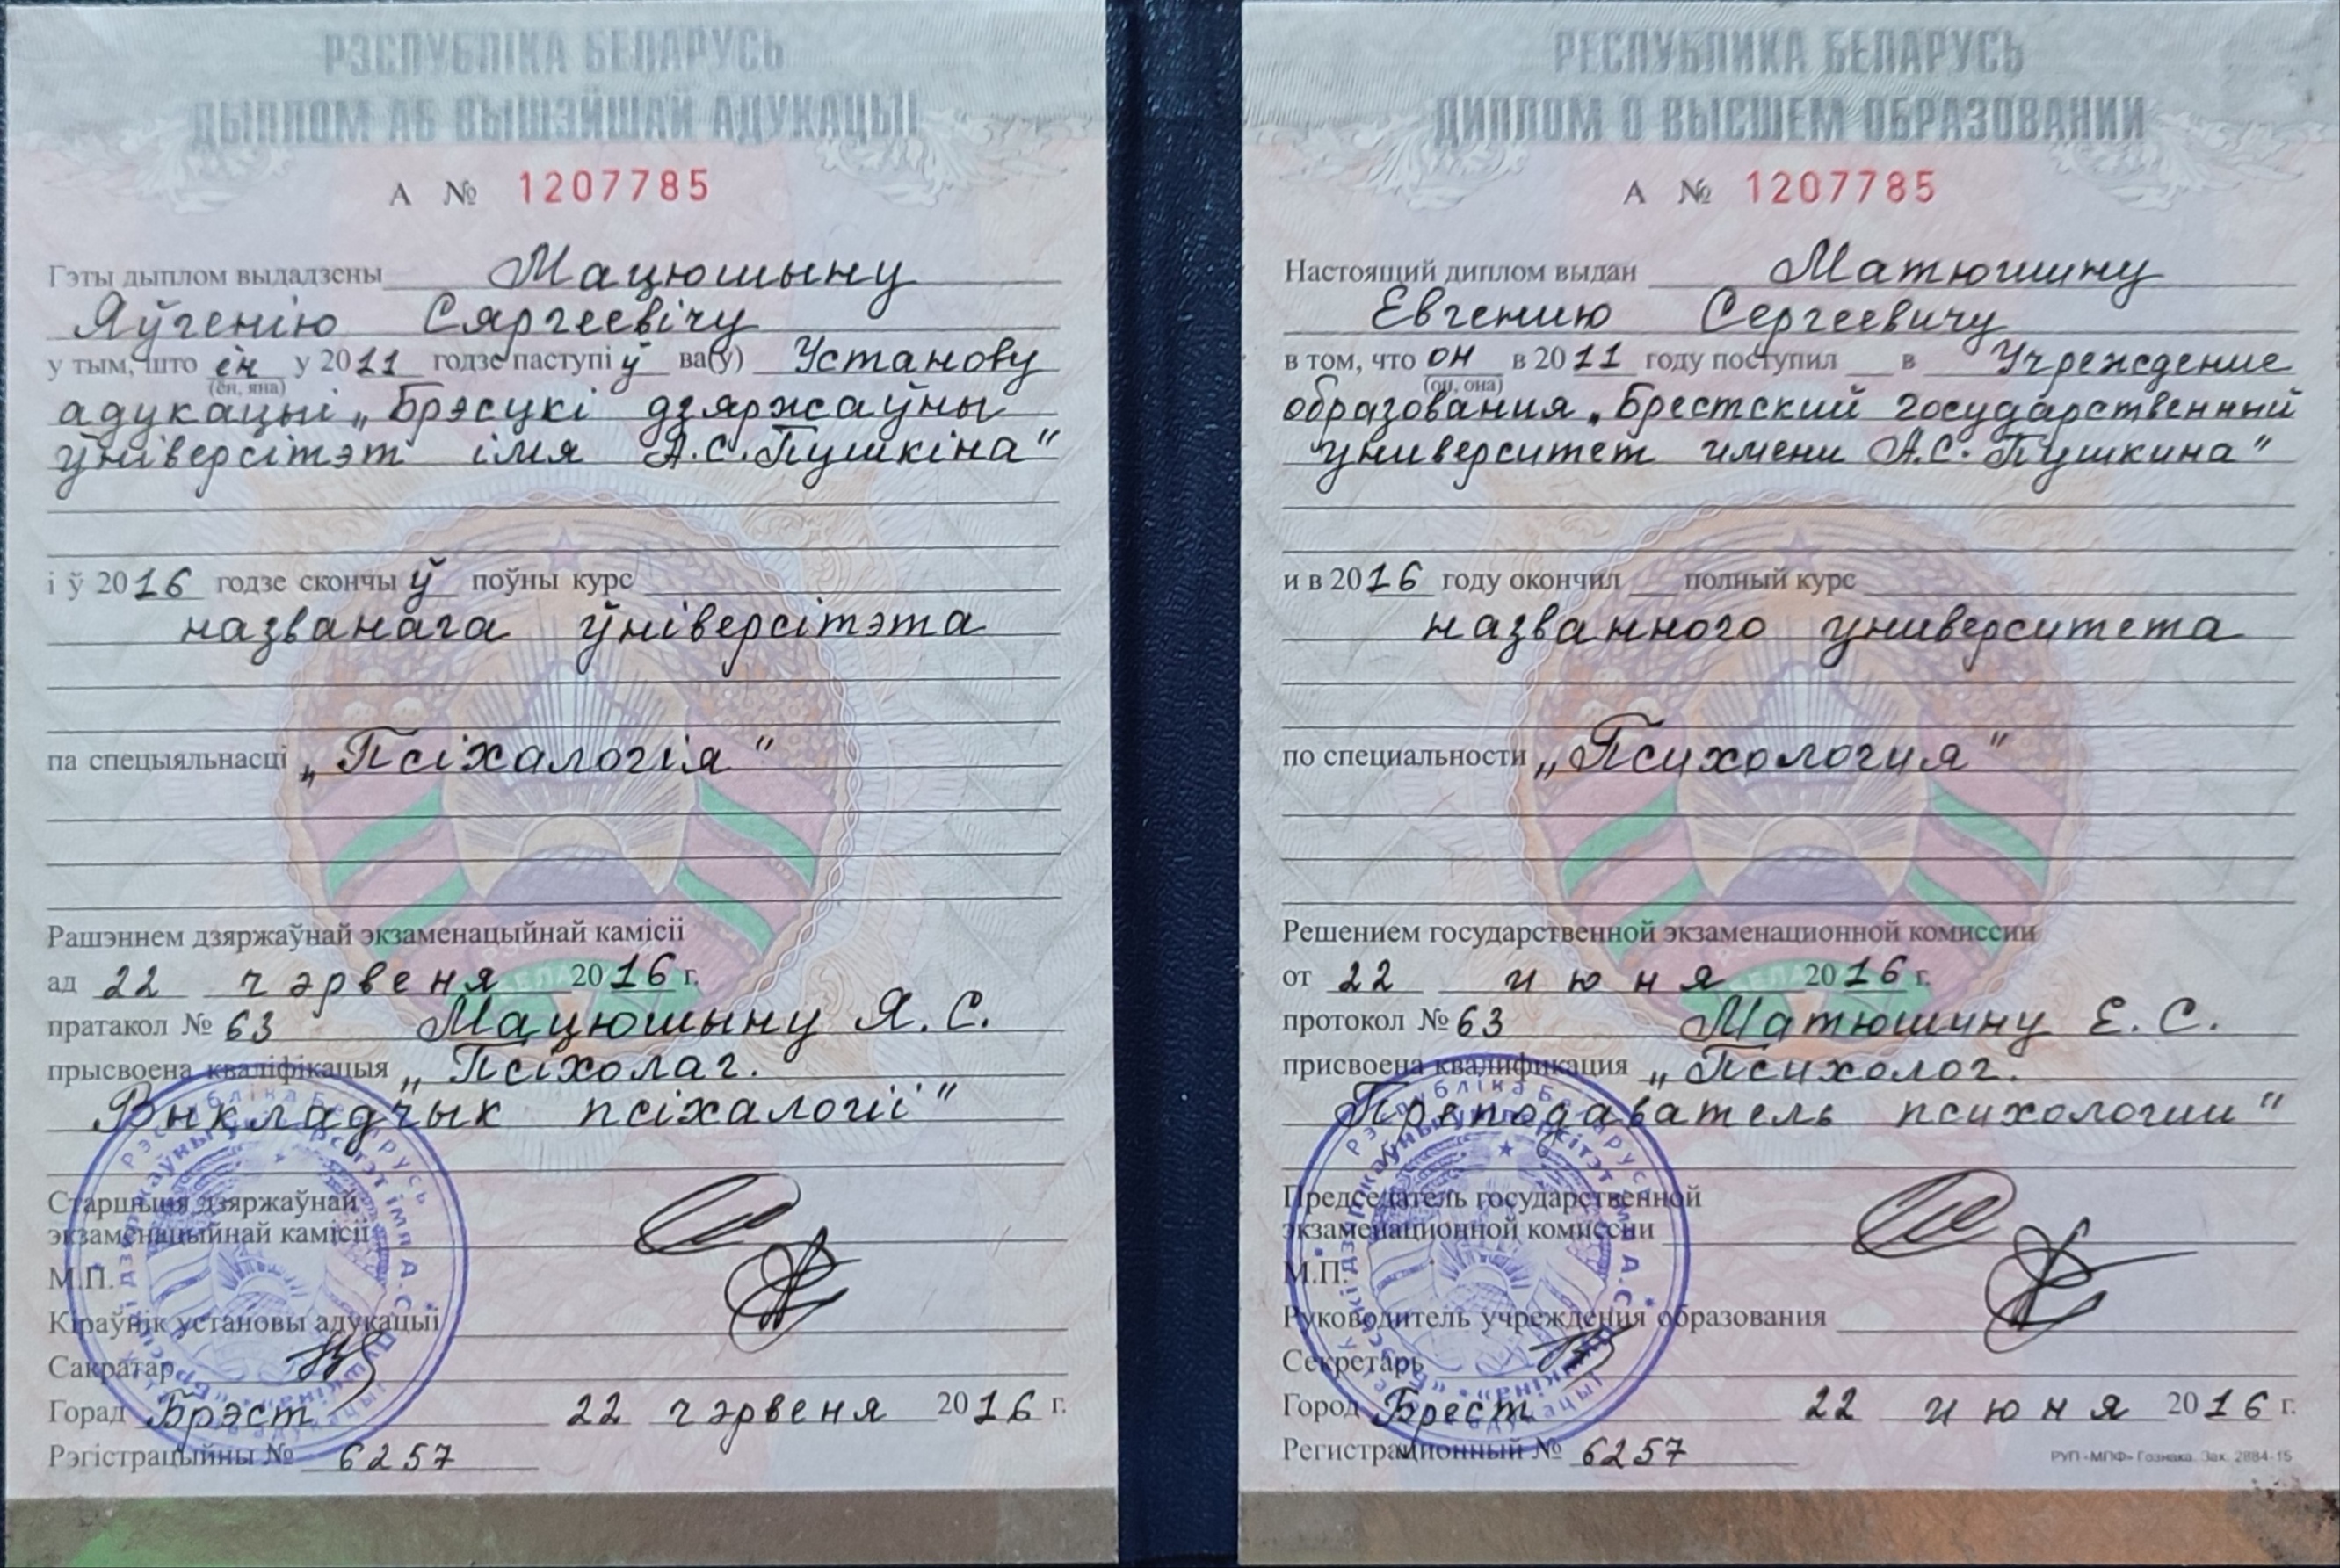 РЭСПУБЛІКА БЕЛАРУСЬ
ДЫПЛОМ АБ ВЫШЭЙШАЙ АДУКАЦЫІ
А № 1207785
Гэты дыплом выдадзены Мацюшыну
Яўгенію Сяргеевічу
у тым, што ён у 2011 годзе паступіў ва(у) Установу
(ён, яна)
адукацыі „Брэсцкі дзяржаўны
ўніверсітэт імя А.С.Пушкіна"
і ў 2016 годзе скончыў поўны курс
названага ўніверсітэта
па спецыяльнасці „Псіхалогія"
Рашэннем дзяржаўнай экзаменацыйнай камісіі
ад 22 чэрвеня 2016 г.
пратакол № 63 Мацюшыну Я. С.
прысвоена кваліфікацыя „Псіхолаг.
Выкладчык псіхалогіі"
Старшыня дзяржаўнай
экзаменацыйнай камісіі
М.П.
Кіраўнік установы адукацыі
Сакратар
Горад Брэст 22 чэрвеня 2016 г.
Рэгістрацыйны № 6257
РЕСПУБЛИКА БЕЛАРУСЬ
ДИПЛОМ О ВЫСШЕМ ОБРАЗОВАНИИ
А № 1207785
Настоящий диплом выдан Матюшину
Евгению Сергеевичу
в том, что он в 2011 году поступил в Учреждение
(он, она)
образования „Брестский государственный
университет имени А.С. Пушкина"
и в 2016 году окончил полный курс
названного университета
по специальности „Психология"
Решением государственной экзаменационной комиссии
от 22 июня 2016 г.
протокол № 63 Матюшину Е. С.
присвоена квалификация „Психолог.
Преподаватель психологии"
Председатель государственной
экзаменационной комиссии
М.П.
Руководитель учреждения образования
Секретарь
Город Брест 22 июня 2016 г.
Регистрационный № 6257
РУП «МПФ» Гознака. Зак. 2884-15